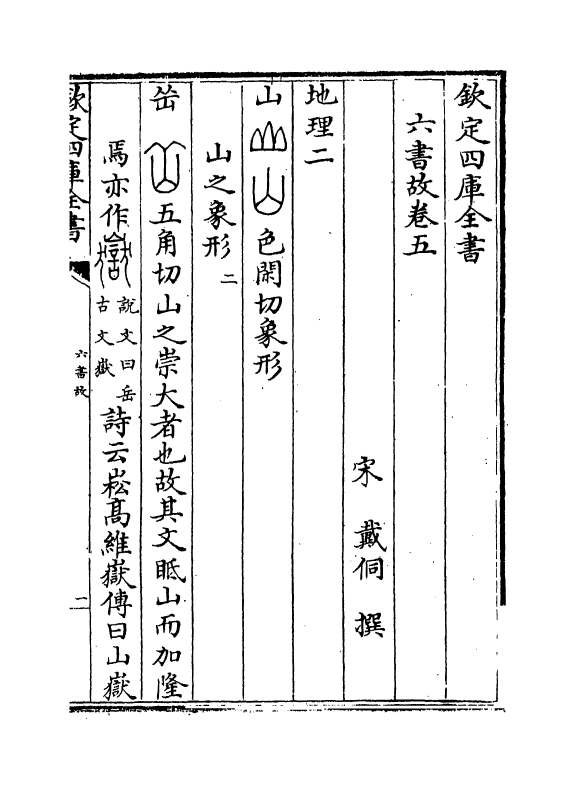 欽定四庫全書
六書故卷五
宋 戴侗 撰
地理二
山 色閑切象形
山之象形二
岳 五角切山之崇大者也故其文眡山而加隆
焉亦作 說文曰岳古文嶽 詩云崧高維嶽傳曰山嶽
欽定四庫全書
六書故
一